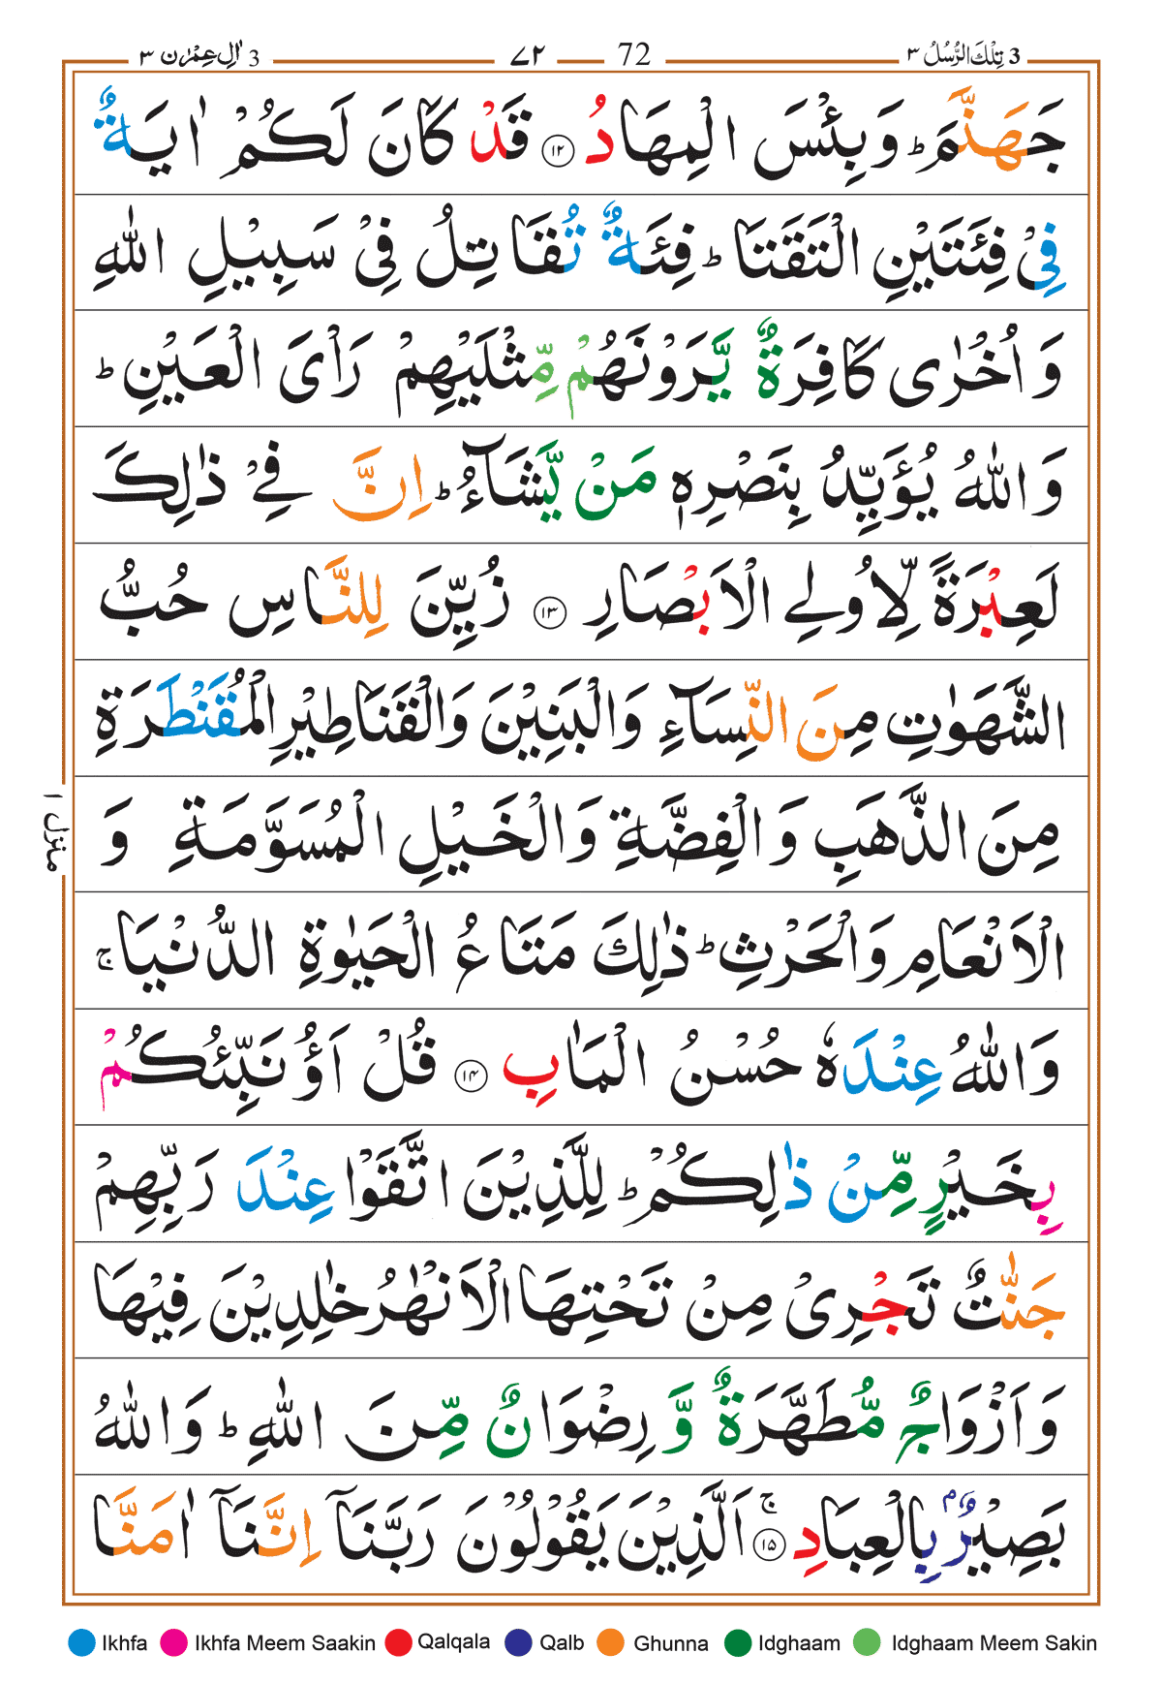 3 تِلْكَ الرُّسُلُ ٣ 72 ٧٢ 3 اٰلِ عِمْرٰن ٣
جَهَنَّمَ ؕ وَبِئْسَ الْمِهَادُ ﴿۱۲﴾ قَدْ كَانَ لَكُمْ اٰيَةٌ
فِىْ فِئَتَيْنِ الْتَقَتَا ؕ فِئَةٌ تُقَاتِلُ فِىْ سَبِيْلِ اللّٰهِ
وَاُخْرٰى كَافِرَةٌ يَّرَوْنَهُمْ مِّثْلَيْهِمْ رَاْىَ الْعَيْنِ ؕ
وَاللّٰهُ يُؤَيِّدُ بِنَصْرِهٖ مَنْ يَّشَآءُ ؕ اِنَّ فِىْ ذٰلِكَ
لَعِبْرَةً لِّاُولِى الْاَبْصَارِ ﴿۱۳﴾ زُيِّنَ لِلنَّاسِ حُبُّ
الشَّهَوٰتِ مِنَ النِّسَآءِ وَالْبَنِيْنَ وَالْقَنَاطِيْرِ الْمُقَنْطَرَةِ
مِنَ الذَّهَبِ وَالْفِضَّةِ وَالْخَيْلِ الْمُسَوَّمَةِ وَ
الْاَنْعَامِ وَالْحَرْثِ ؕ ذٰلِكَ مَتَاعُ الْحَيٰوةِ الدُّنْيَا ۚ
وَاللّٰهُ عِنْدَهٗ حُسْنُ الْمَاٰبِ ﴿۱۴﴾ قُلْ اَؤُنَبِّئُكُمْ
بِخَيْرٍ مِّنْ ذٰلِكُمْ ؕ لِلَّذِيْنَ اتَّقَوْا عِنْدَ رَبِّهِمْ
جَنّٰتٌ تَجْرِىْ مِنْ تَحْتِهَا الْاَنْهٰرُ خٰلِدِيْنَ فِيْهَا
وَاَزْوَاجٌ مُّطَهَّرَةٌ وَّرِضْوَانٌ مِّنَ اللّٰهِ ؕ وَاللّٰهُ
بَصِيْرٌۢ بِالْعِبَادِ ۚ ﴿۱۵﴾ اَلَّذِيْنَ يَقُوْلُوْنَ رَبَّنَآ اِنَّنَآ اٰمَنَّا
منزل ١
Ikhfa Ikhfa Meem Saakin Qalqala Qalb Ghunna Idghaam Idghaam Meem Sakin